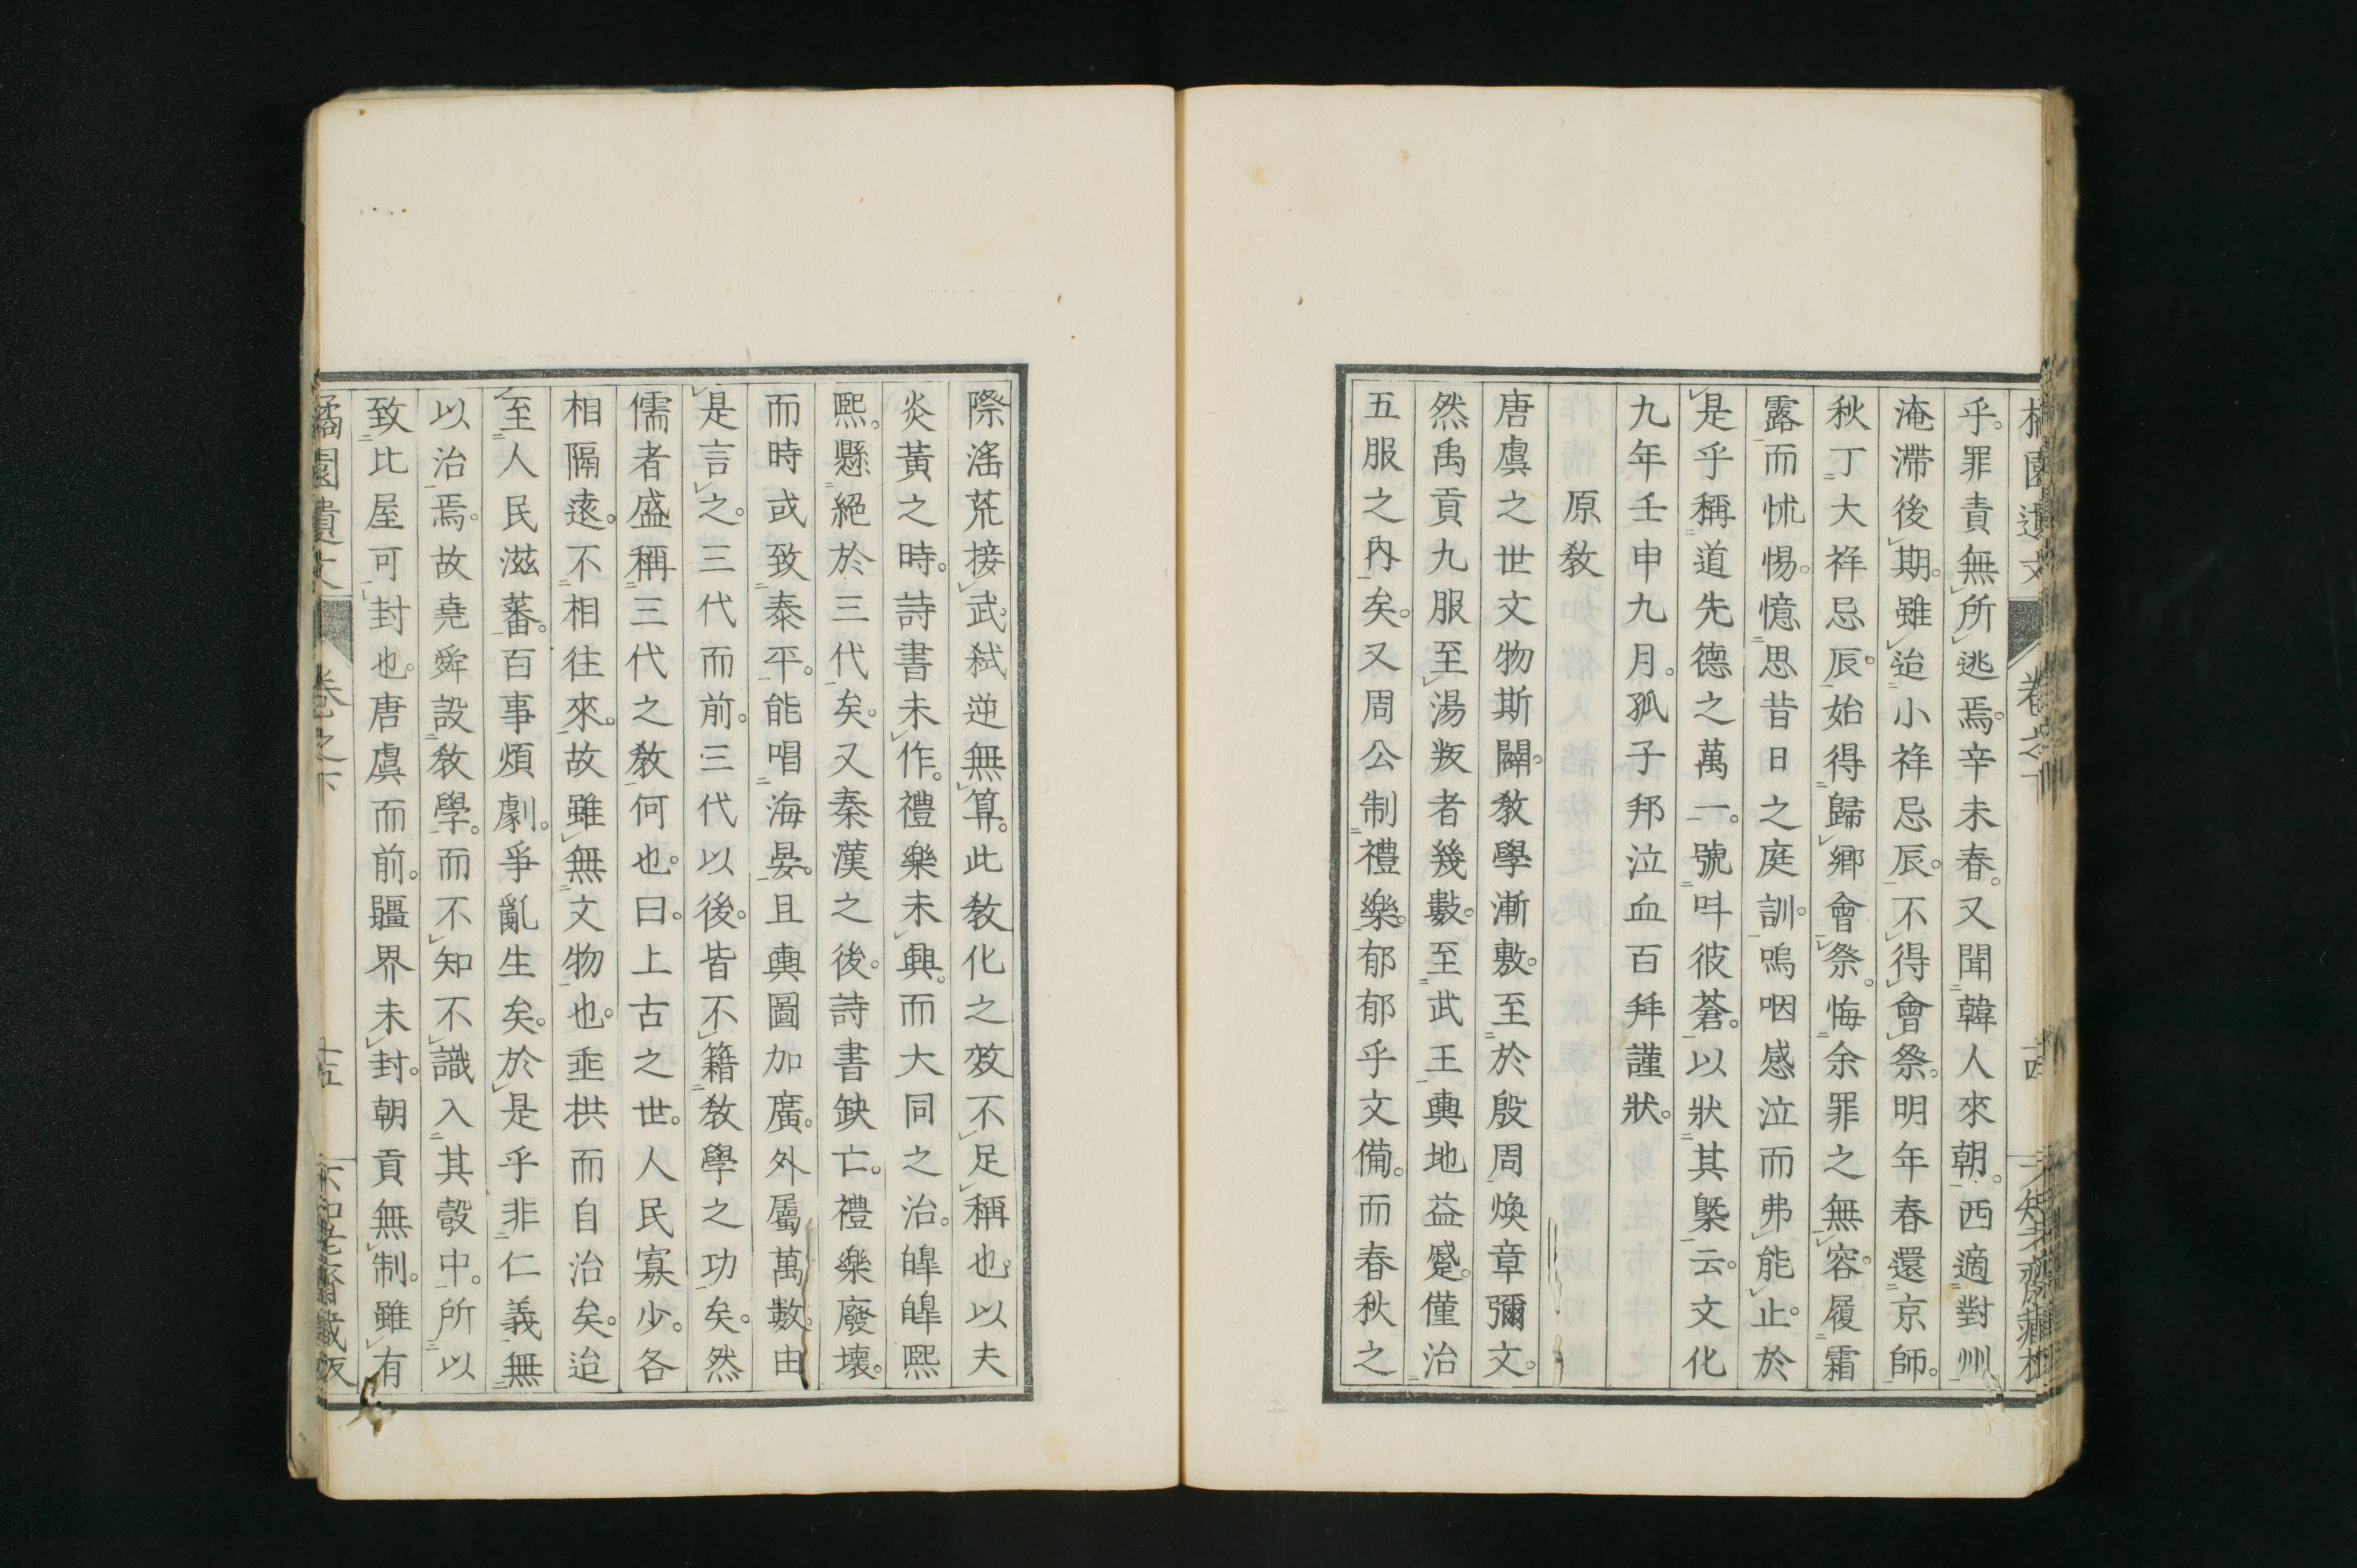 乎。罪責無所逃焉。辛未春。又聞韓人來朝。西適對州
淹滯後期。雖迨小祥忌辰。不得會祭。明年春還京師。
秋丁大祥忌辰。始得歸鄉會祭。悔余罪之無容。履霜
露而怵惕。憶思昔日之庭訓。嗚咽感泣而弗能止。於
是乎稱道先德之萬一。號呌彼蒼。以狀其槩云。文化
九年壬申九月。孤子邦泣血百拜謹狀。
原教
唐虞之世文物斯闢。教學漸敷。至於殷周煥章彌文。
然禹貢九服至湯叛者幾數。至武王輿地益蹙。僅治
五服之內矣。又周公制禮樂。郁郁乎文備。而春秋之
際滛荒接武。弑逆無算。此教化之效不足稱也。以夫
炎黃之時。詩書未作。禮樂未興。而大同之治。皥皥熙
熙。懸絕於三代矣。又秦漢之後。詩書缺亡。禮樂廢壞。
而時或致泰平。能唱海晏。且輿圖加廣。外屬萬數。由
是言之。三代而前。三代以後。皆不籍教學之功矣。然
儒者盛稱三代之教何也。曰。上古之世。人民寡少。各
相隔遠。不相往來。故雖無文物也。垂拱而自治矣。迨
至人民滋蕃。百事煩劇。爭亂生矣。於是乎非仁義無
以治焉。故堯舜設教學。而不知不識入其彀中。所以
致比屋可封也。唐虞而前。疆界未封。朝貢無制。雖有
橘園遺文 卷之下 十五